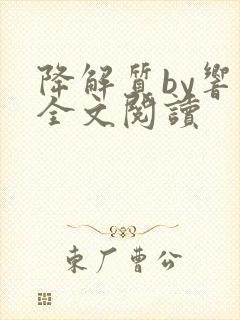 降解質by響
全文閱讀
東厂曹公